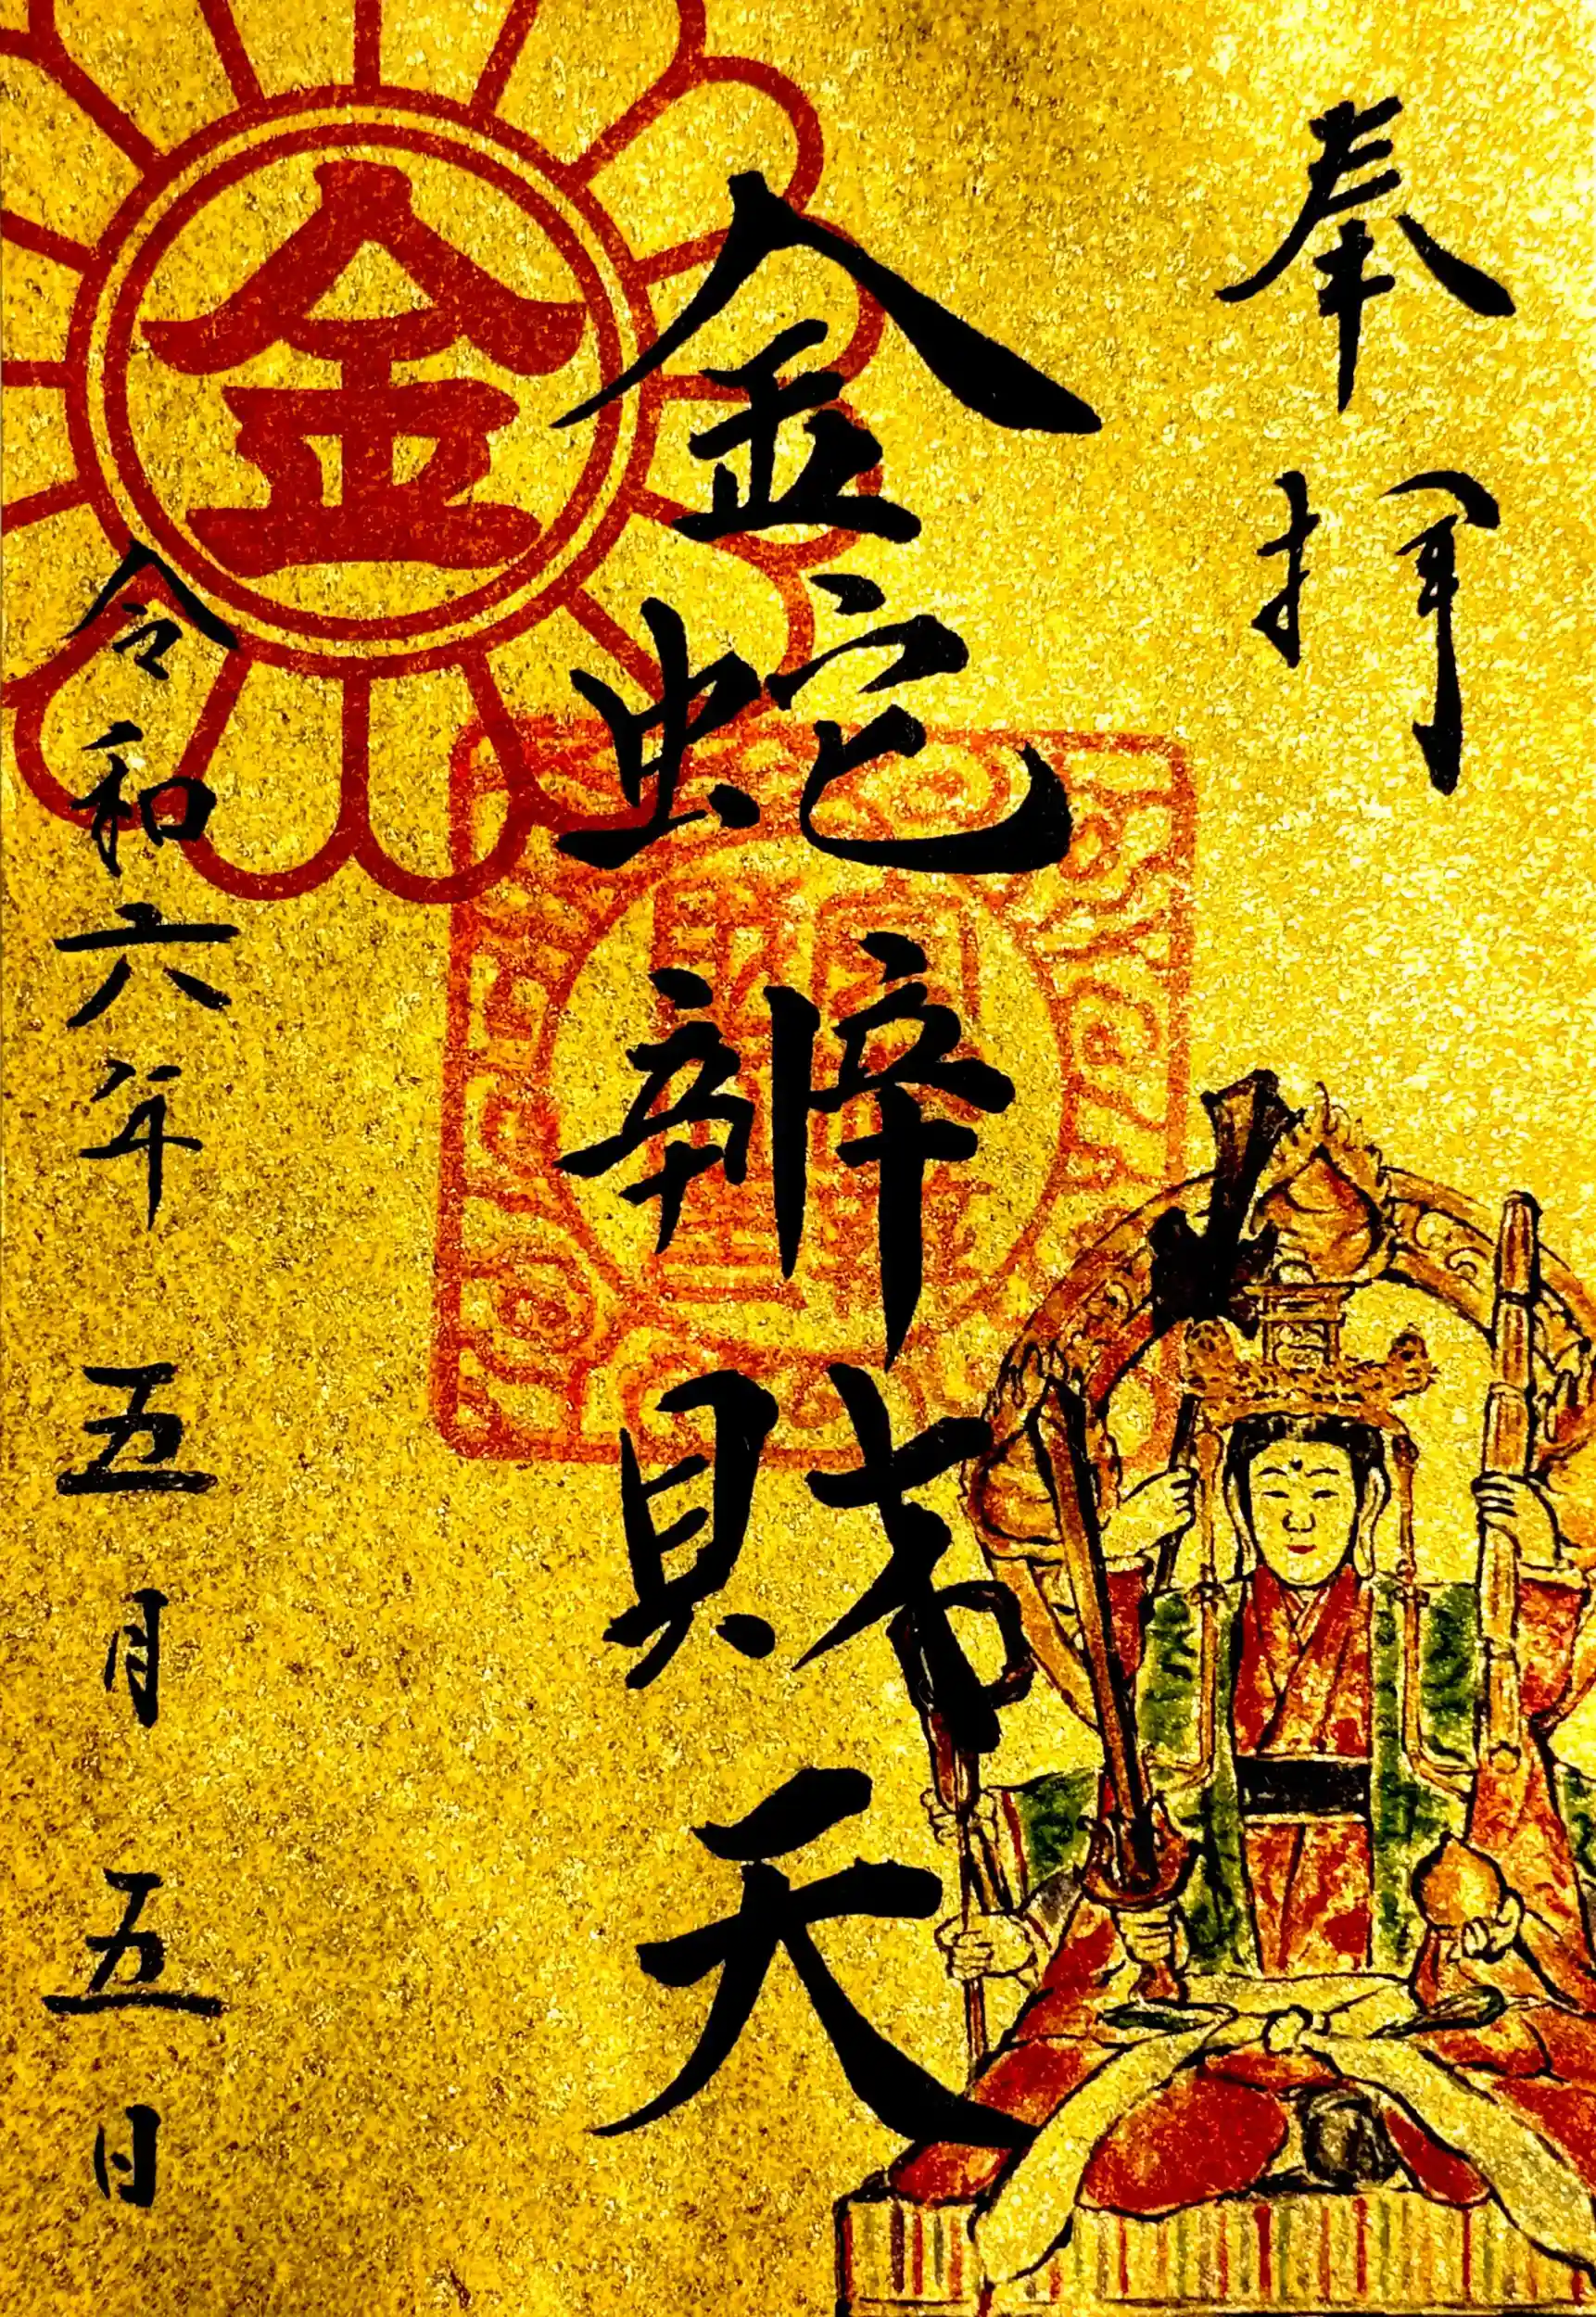 奉拝
金蛇辨財天
金
令和六年五月五日